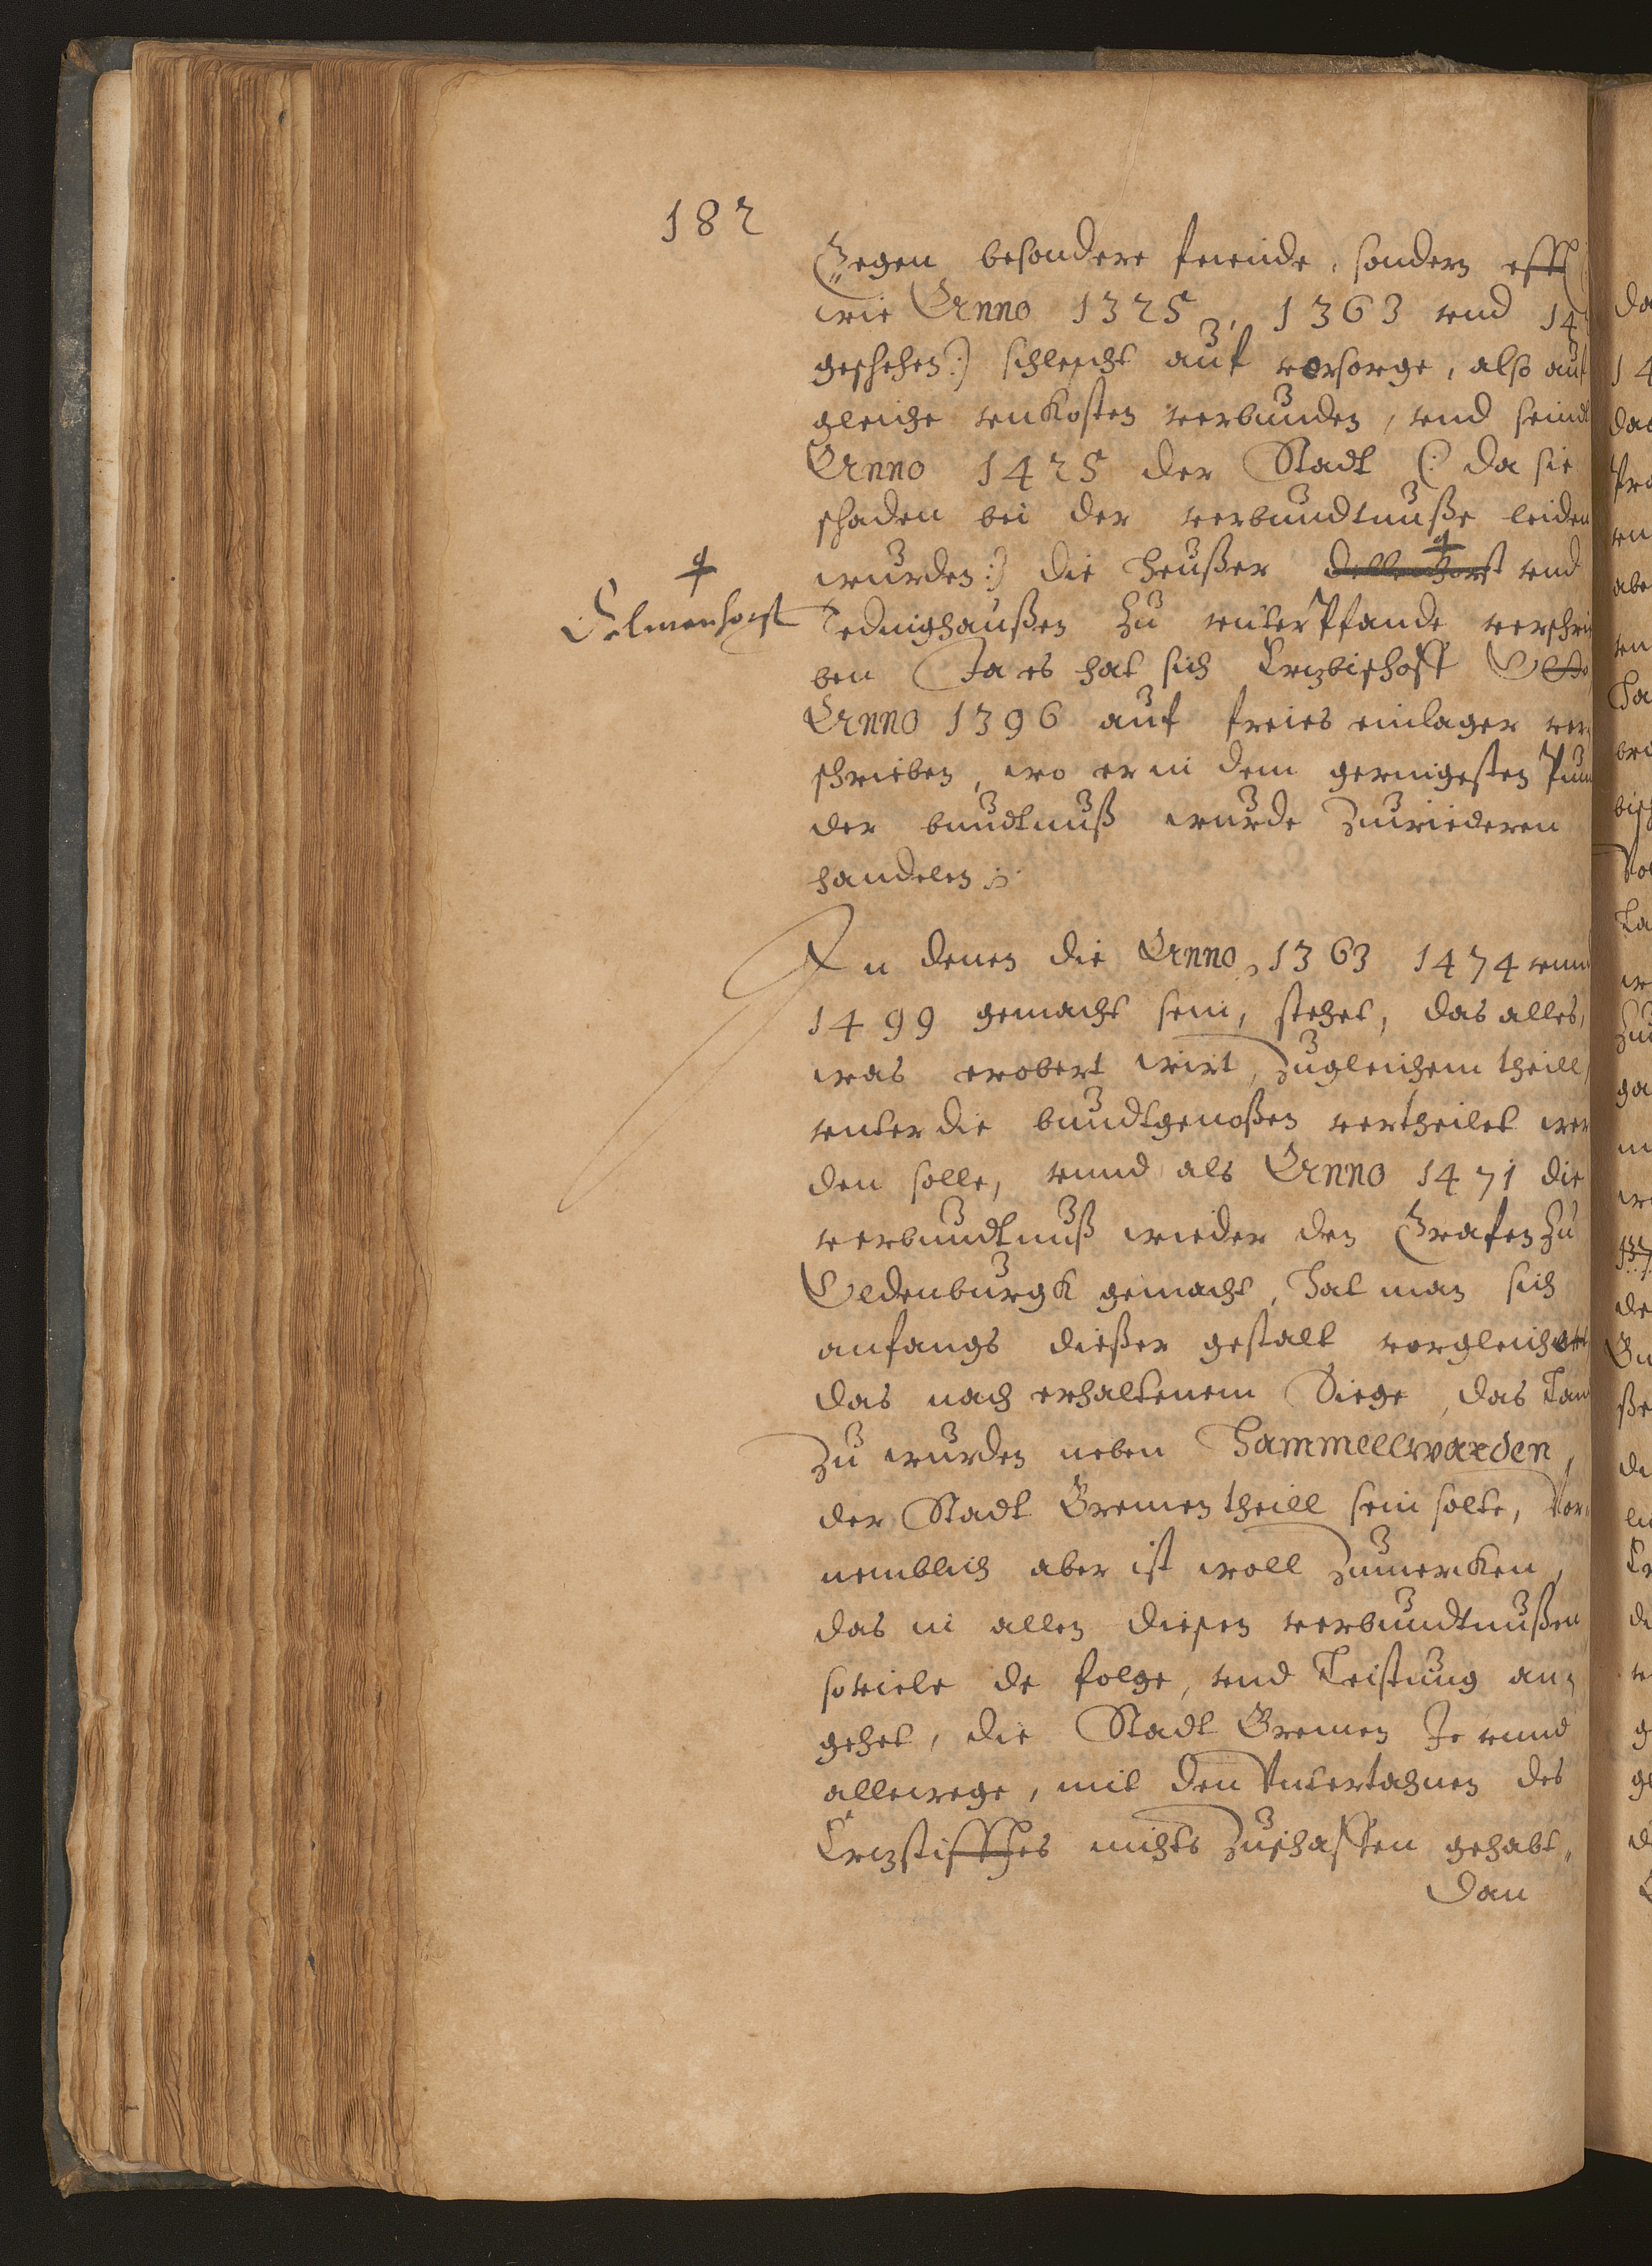 182
Gegen besondere feiende, sondern offt
wie Anno 1325, 1363 vnd 14
geschehen:) schlecht auf vorsorge, also auf
gleiche vnkosten verbunden, vnd seind
Anno 1425 der Stadt (: da sie
schaden bei der verbundtnuße leiden
wurden:) die heußer Dellenhorst vnd
Delmenhorst
Tedinghaußen zu vnterPfande verschri
ben Ja es hat sich Ertzbischoff Otto
Anno 1396 auf freies einlager ver
schrieben, wo er in dem geringesten Pun
der bundtnuß wurde zuwiederen
handelen
In denen die Anno 1363 1474 vnnd
1499 gemacht sein, stehet, das alles,
was erobert wirt, zugleichem theill,
vnter die bundtgenoßen vertheilet wer
den solle, vnnd als Anno 1471 die
verbundtnuß wieder den Grafen zu
Oldenburgk gemacht, hat man sich
anfangs dießer gestalt vorgleichet
das nach erhaltenem Siege, das Lan
zu wurden neben Hammellwarden,
der Stadt Bremen theill sein solte, Vor
nemblich aber ist woll zumercken,
das in allen diesen verbundtnußen
soviele de folge, vnd Leistung an=
gehet, die Stadt Bremen Je vnnd
allewege, mit den Vntertahnen des
Ertzstifftes nichts zuschaffen gehabt,
Dan